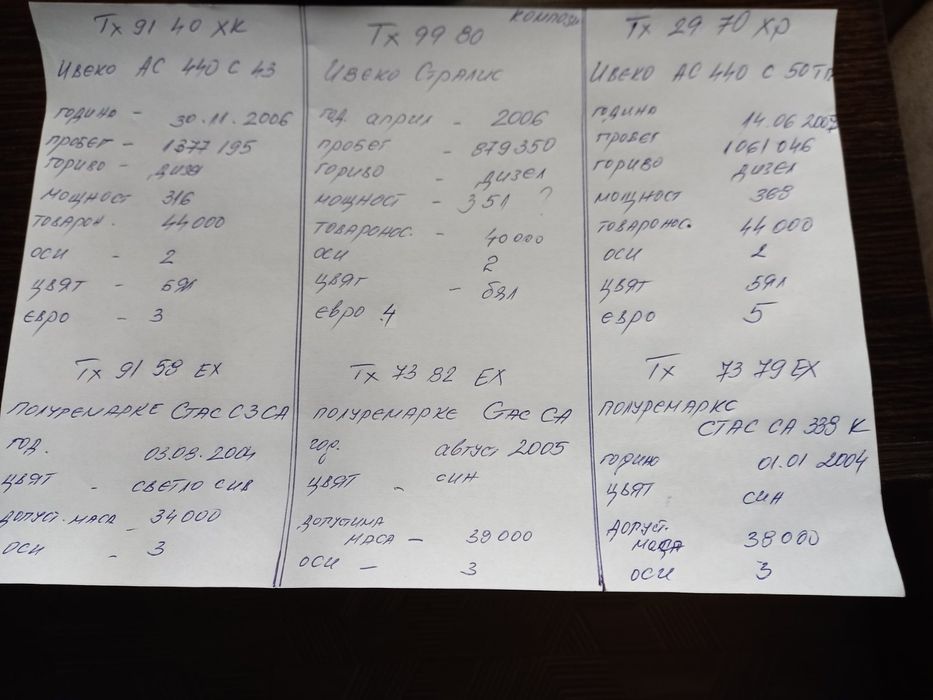 Тх 91 40 ХК
Ивеко АС 440 С 43
година - 30.11.2006
пробег - 1377195
гориво - дизел
мощност 316
товарон. - 44000
оси - 2
цвят - бял
евро - 3
Тх 91 58 ЕХ
ПОЛУРЕМАРКЕ СТАС СЗСА
год. 03.03.2004
цвят - светло сив
допуст. маса - 34000
оси - 3
композ.
Тх 99 80
Ивеко Стралис
год април - 2006
пробег - 879350
гориво - дизел
мощност - 351 ?
товаронос. - 40000
оси 2
цвят - бял
евро 4
Тх 73 82 ЕХ
ПОЛУРЕМАРКЕ СТАС СА
год. август 2005
цвят - син
допустима
маса - 39000
оси - 3
Тх 29 70 ХР
Ивеко АС 440 С 50 ТП
година 14.06 2007
пробег 1061046
гориво дизел
мощност 368
товаронос. 44000
оси 2
цвят бял
евро 5
Тх 73 79 ЕХ
ПОЛУРЕМАРКЕ
СТАС СА 338 К
година 01.01 2004
цвят син
допуст.
маса 38000
оси 3